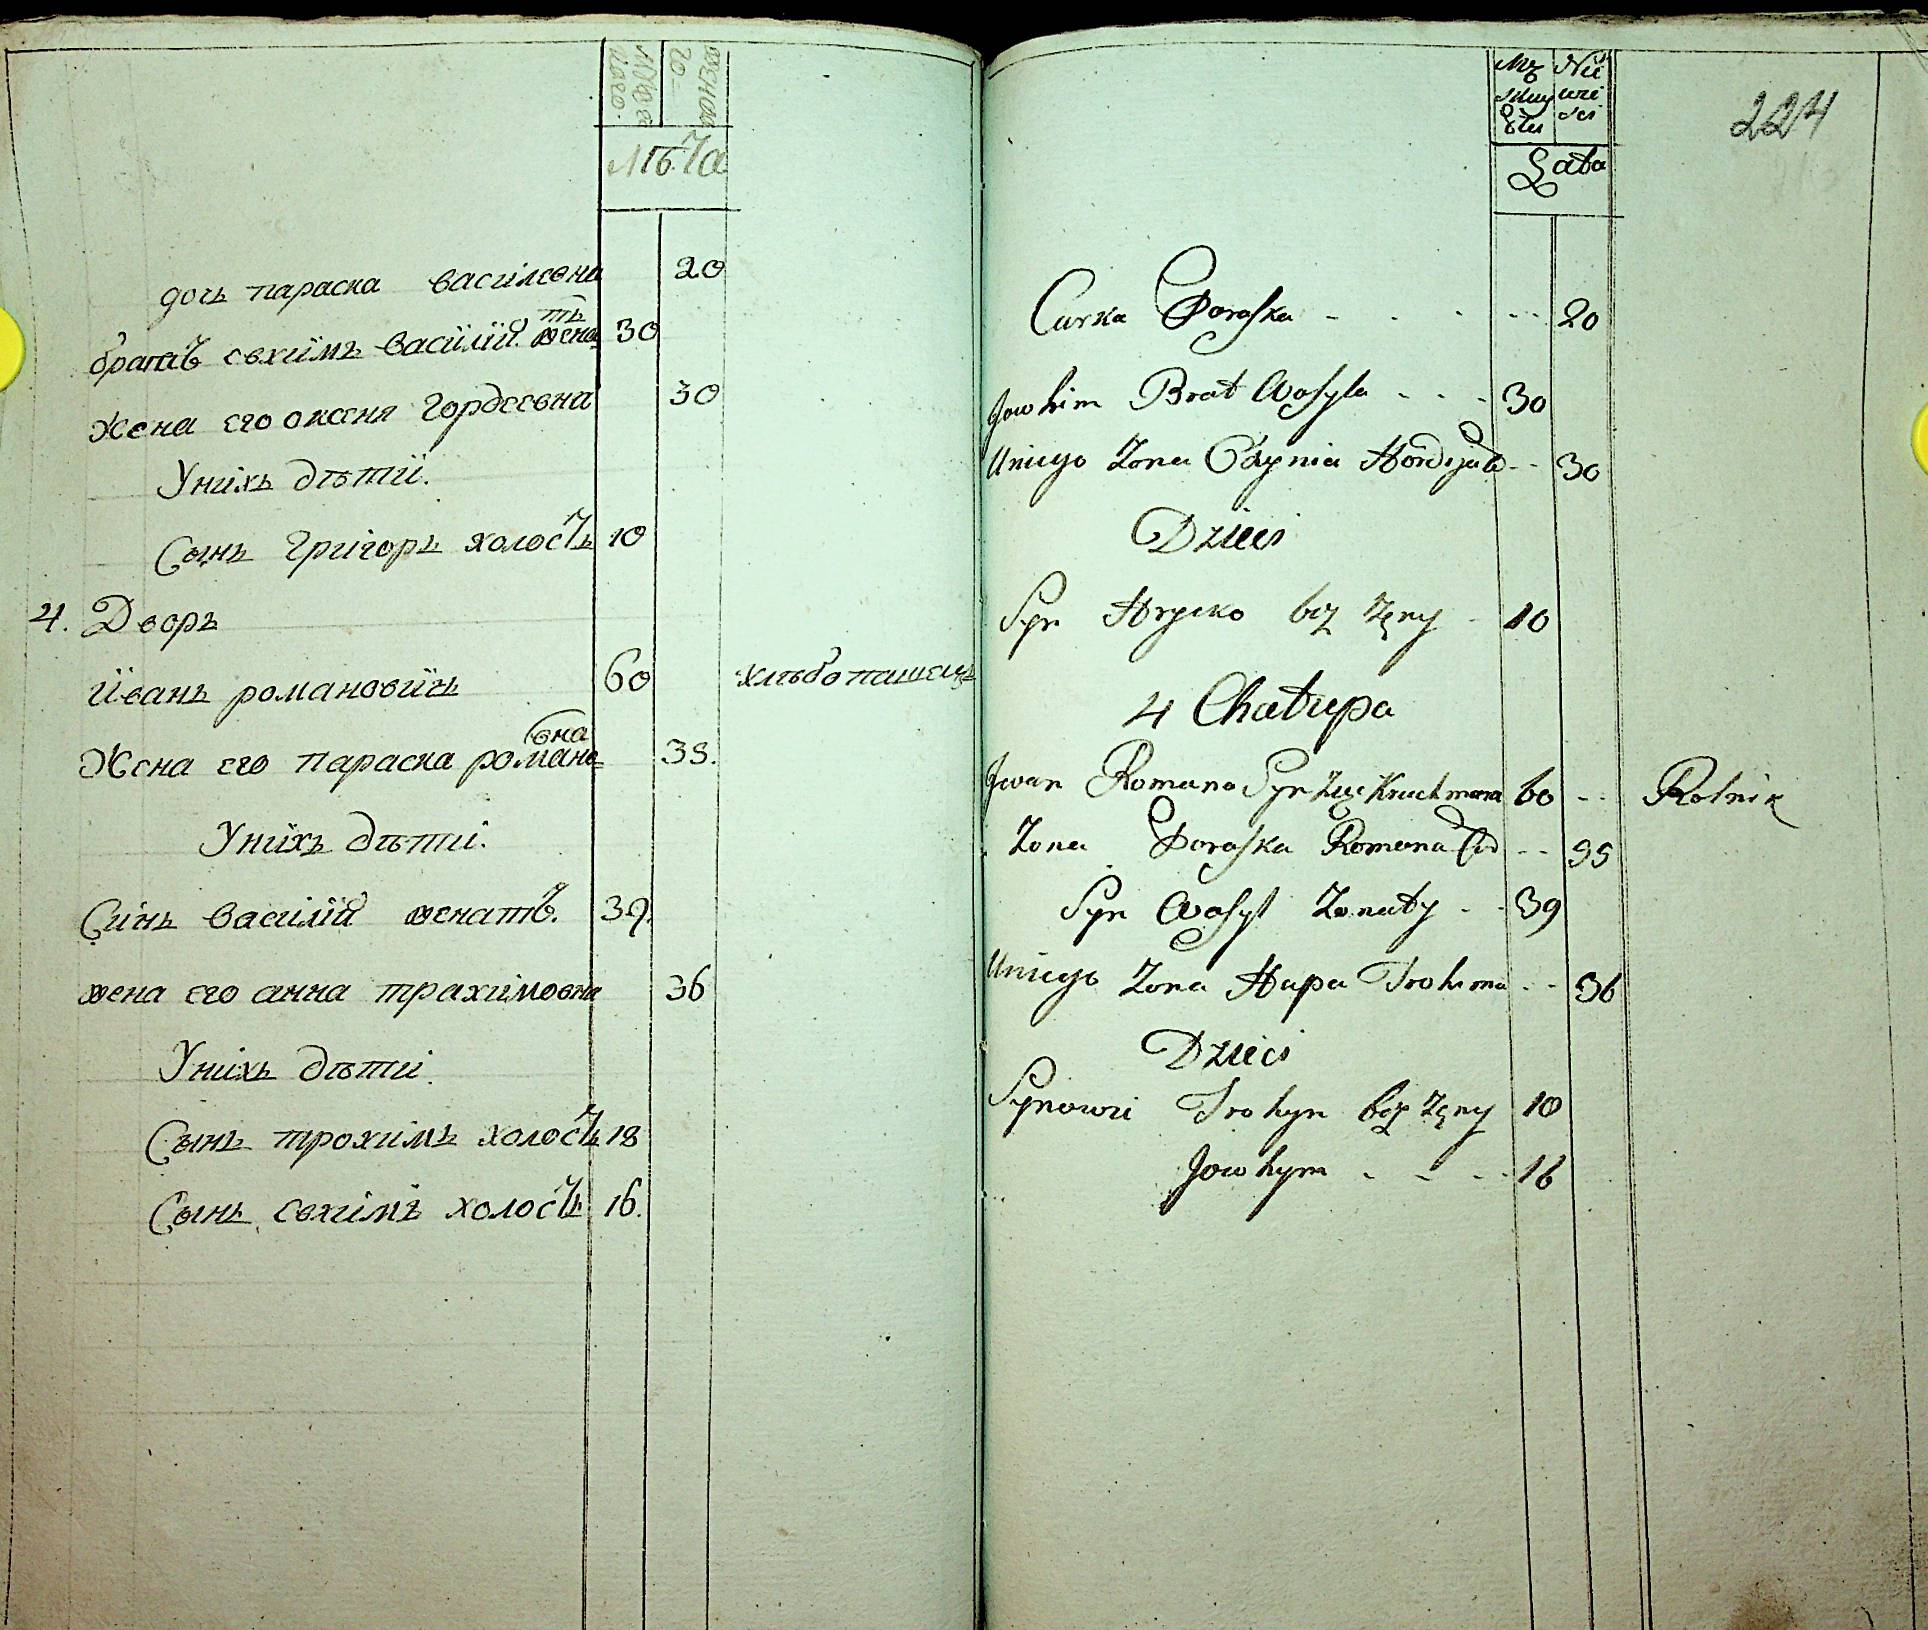 мужеска
го
женска
го
лѣта
дочь параска василевна 20
братъ евхимъ василий женатъ 30
Жена его оксеня Гордеевна 30
Унихъ дѣтй.
Сынъ Григоръ холостъ 10
4. Дворъ
йванъ романовичъ 60 хлѣбопашецъ
Жена его параска романовна 35.
Унйхъ дѣти.
Синъ василий женатъ. 39.
жена его анна трахимовна 36
Унихъ дѣти.
Сынъ трохимъ холостъ 18
Сынъ евхимъ холостъ 16.
224
Łata
Curka Paraska - - - - 20
Jowhim Brat Wasyla - - - 30
Uniego Żona Hordyja - - 30
Dzieci
Syn Hrycko bez żeny - 10
4 Chałupa
Jwan Romana Syn 60 - - Rolnik
Żona Paraska Romana - - 35
Syn Wasyl Żonaty - - 39
Uniego Żona Hapa Trohima - - 36
Dzieci
Synowie Trohym bez żeny 18
Jowhym - - - - 16